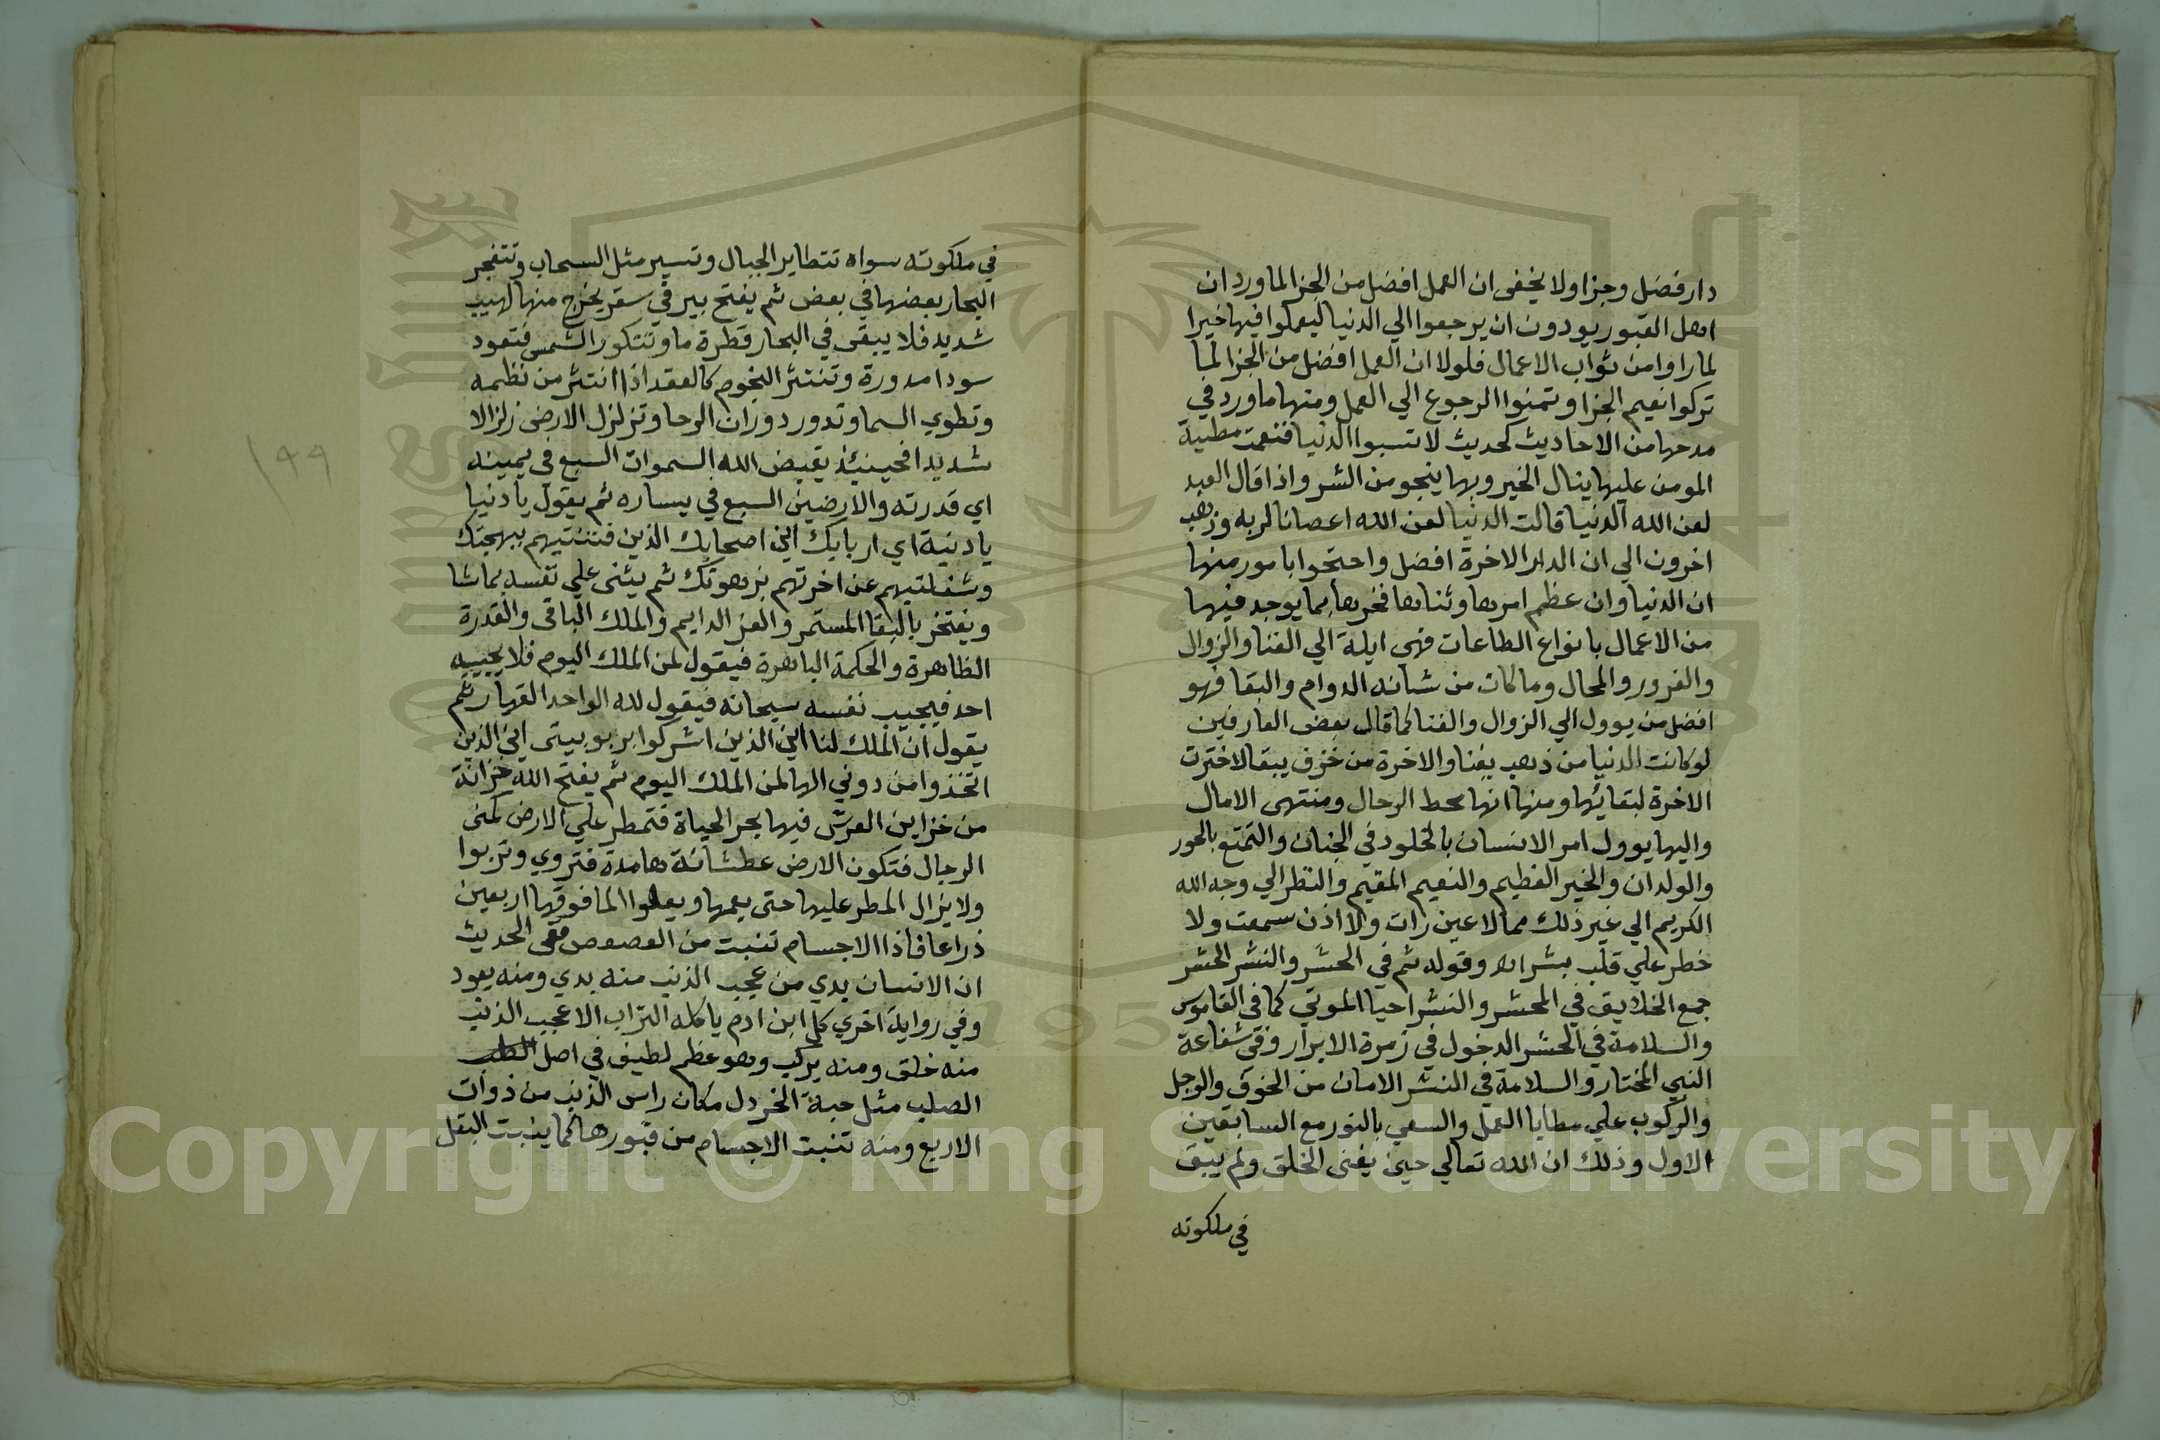 دار فضل وجزا ولا يخفى ان العمل افضل من الجزا لما ورد ان
اهل القبور يودون ان يرجعوا الي الدنيا ليعملوا فيها خيرا
لما راوا من ثواب الاعمال فلولا ان العمل افضل من الجزا لما
تركوا نعيم الجزا وتمنوا الرجوع الي العمل ومنها ما ورد في
مدحها من الاحاديث كحديث لا تسبوا الدنيا فنعمت مطية
المومن عليها ينال الخير وبها ينجو من الشر واذا قال العبد
لعن الله الدنيا قالت الدنيا لعن الله اعصانا لربه وذهب
اخرون الي ان الدار الاخرة افضل واحتجوا بامور منها
ان الدنيا وان عظم امرها وثناها فخرها بما يوجد فيها
من الاعمال بانواع الطاعات فهى ايلة الي الفنا والزوال
والغرور والمحال وما كان من شانه الدوام والبقا فهو
افضل من يوول الي الزوال والفنا كما قال بعض العارفين
لو كانت الدنيا من ذهب يفنا والاخرة من خزف يبقا لاخترت
الاخرة لبقائها ومنها انها محط الرحال ومنتهى الامال
واليها يوول امر الانسان بالخلود في الجنان والتمتع بالحور
والولدان والخير العظيم والنعيم المقيم والنظر الي وجه الله
الكريم الي غير ذلك مما لا عين رات ولا اذن سمعت ولا
خطر علي قلب بشر وقوله ثم في الحشر والنشر الحشر
جمع الخلايق في المحشر والنشر احيا الموتي كما في القاموس
والسلامة في الحشر الدخول في زمرة الابرار وفي شفاعة
النبي المختار والسلامة في النشر الامان من الخوف والوجل
والركوب علي مطايا العمل والسعي بالنور مع السابقين
الاول وذلك ان الله تعالي حين يفنى الخلق ولم يبق
في ملكوته
في ملكوته سواه تتطاير الجبال وتسير مثل السحاب وتتفجر
البحار بعضها في بعض ثم يفتح بير في سقر يخرج منها لهيب
شديد فلا يبقى في البحار قطرة ما وتتكور الشمس فتعود
سودا مدورة وتنتثر النجوم كالعقد اذا انتثر من نظمه
وتطوي السما وتدور دوران الرحا وتزلزل الارض زلزالا
شديدا فحينئذ يقبض الله السموات السبع في يمينه
اي قدرته والارضين السبع في يساره ثم يقول يا دنيا
يا دنية اي اربابك اين اصحابك الذين فتنتيهم ببهجتك
وشغلتيهم عن اخرتهم بزهوتك ثم يثنى علي نفسه بما شا
ويفتخر بالبقا المستمر والعز الدايم والملك الباقى والقدرة
الظاهرة والحكمة الباهرة فيقول لمن الملك اليوم فلا يجيبه
احد فيجيب نفسه سبحانه فيقول لله الواحد القهار ثم
يقول ان الملك لنا اين الذين اشركوا بربوبيتى اين الذين
اتخذوا من دوني الها لمن الملك اليوم ثم يفتح الله خزانة
من خزاين العرش فيها بحر الحياة فتمطر علي الارض كمني
الرجال فتكون الارض عطشانة هامدة فتروي وتربوا
ولا يزال المطر عليها حتى يعمها ويعلوا الما فوقها اربعين
ذراعا فاذا الاجسام تنبت من العصوص ففى الحديث
ان الانسان بدي من عجب الذنب منه بدي ومنه يعود
وفي رواية اخري كل ابن ادم ياكله التراب الا عجب الذنب
منه خلق ومنه يركب وهو عظم لطيف في اصل
الصلب مثل حبة الخردل مكان راس الذنب من ذوات
الاربع ومنه تنبت الاجسام من قبورها كما ينبت البقل
١٩٩
Copyright © King Saud University
1957